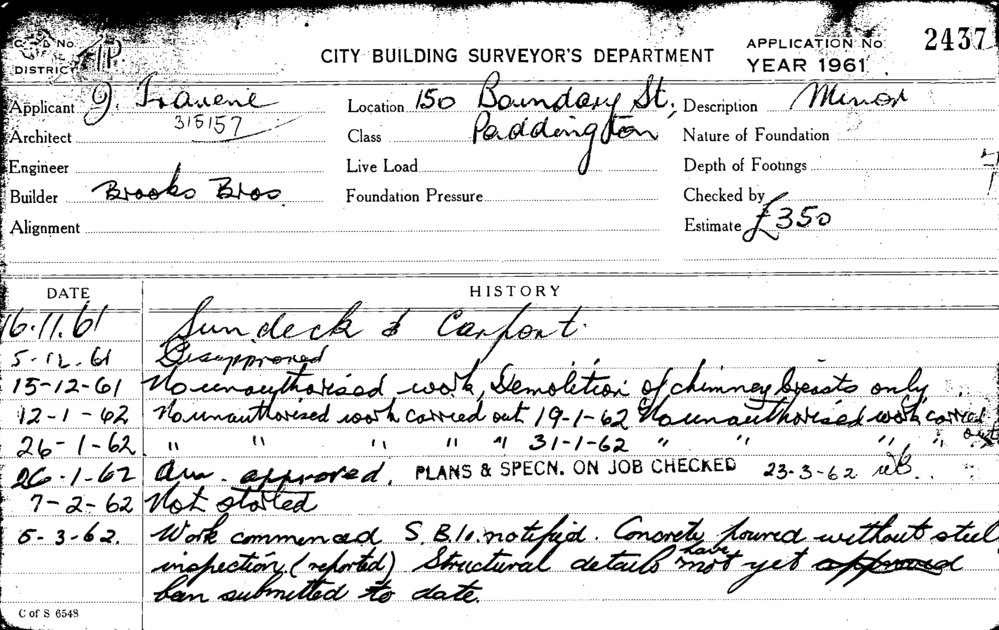 C. & D. No
DISTRICT
CITY BUILDING SURVEYOR'S DEPARTMENT
APPLICATION No 2437
YEAR 1961
Applicant J. Travene Location 150 Boundary St, Description Minor
315157
Architect Class Paddington Nature of Foundation
Engineer Live Load Depth of Footings
Builder Brooks Bros. Foundation Pressure Checked by
Alignment Estimate £350
DATE HISTORY
16.11.61 Sundeck & Carport.
5-12.61 Disapproved
15-12-61 No unauthorised work, Demolition of chimney breasts only
12-1-62 No unauthorised work carried out 19-1-62 No unauthorised work carried out
26-1-62 " " " " " 31-1-62 " " " "
26.1-62 approved. PLANS & SPECN. ON JOB CHECKED 23-3-62
7-2-62 Not started
5-3-62. Work commenced S.B.10. notified. Concrete poured without steel
inspection (reported) Structural details have not yet approved
been submitted to date.
C of S 6548